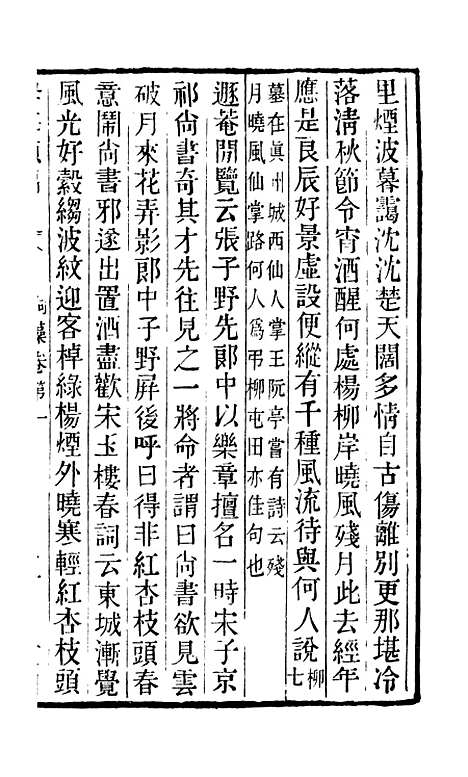 里煙波暮靄沈沈楚天闊多情自古傷離別更那堪冷
落淸秋節今宵酒醒何處楊柳岸曉風殘月此去經年
應是良辰好景虛設便縱有千種風流待與何人說柳七
墓在眞州城西仙人掌王阮亭嘗有詩云殘
月曉風仙掌路何人爲弔柳屯田亦佳句也
遯菴閒覽云張子野先郞中以樂章擅名一時宋子京
祁尙書奇其才先往見之一將命者謂曰尙書欲見雲
破月來花弄影郞中子野屏後呼曰得非紅杏枝頭春
意鬧尙書邪遂出置酒盡歡宋玉樓春詞云東城漸覺
風光好縠縐波紋迎客棹綠楊煙外曉寒輕紅杏枝頭
詞藻卷第一